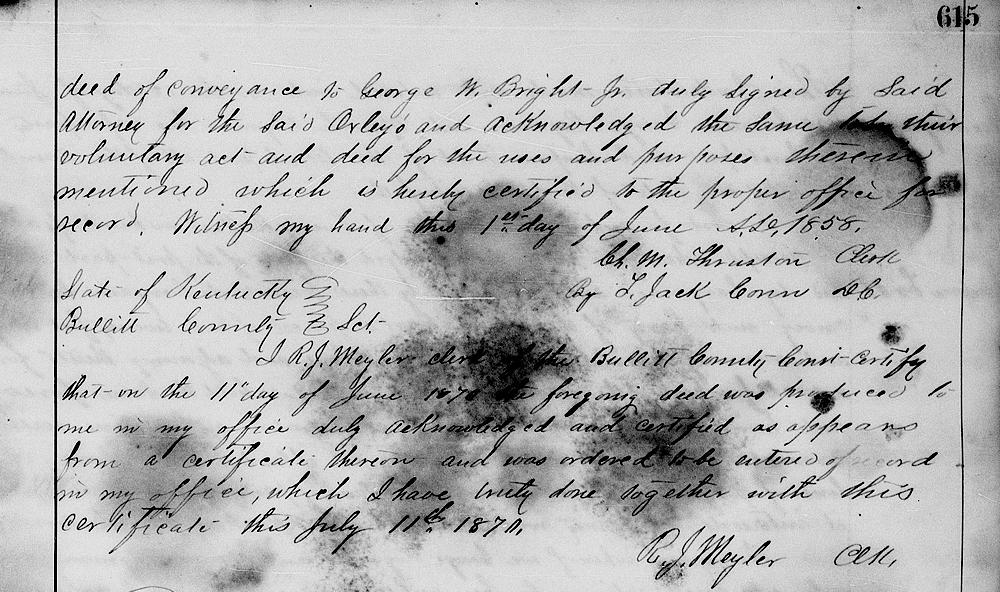 615
deed of conveyance to George W. Bright Jr. duly signed by said
Attorney for the said Orley's and acknowledged the same to be their
voluntary act and deed for the uses and purposes therein
mentioned which is hereby certified to the proper office for
record. Witness my hand this 1st day of June A.D. 1858.
Ch. M. Thruston Clerk
State of Kentucky
By T. Jack Conn D.C.
Bullitt County Sct.
I R.J. Meyler clerk of the Bullitt County Court certify
that on the 11" day of June 1870 the foregoing deed was produced to
me in my office duly acknowledged and certified as appears
from a certificate thereon and was ordered to be entered of record
in my office, which I have truly done together with this
certificate this July 11th 1870.
R.J. Meyler Clk.